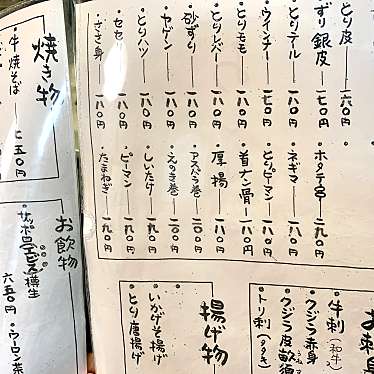 ・とり皮 一六〇円
ずり銀皮 一七〇円
・とりテール 一八〇円
・ウインナー 一七〇円
・とりモモ 一八〇円
・とりレバー 一八〇円
・砂ずり 一八〇円
・ヤゲン 一八〇円
・とりハツ 一八〇円
・セセリ 一八〇円
・ささ身 一八〇円
・ホタテ貝 二九〇円
・ネギマ 一八〇円
・とりピーマン 一八〇円
・首ナンコツ骨 一八〇円
・厚揚 一八〇円
・アスパラ巻 二〇〇円
・えのき巻 二〇〇円
・しいたけ 一九〇円
・ピーマン 一九〇円
・たまねぎ 一九〇円
お刺身
・牛刺(和牛)
・クジラ赤身
・クジラ皮
・トリ刺(タタキ)
揚げ物
・いかげそ揚げ
・とり唐揚げ
焼き物
・牛焼そば 七五〇円
お飲物
・サッポロ生ビール樽生 六五〇円
・ウーロン茶